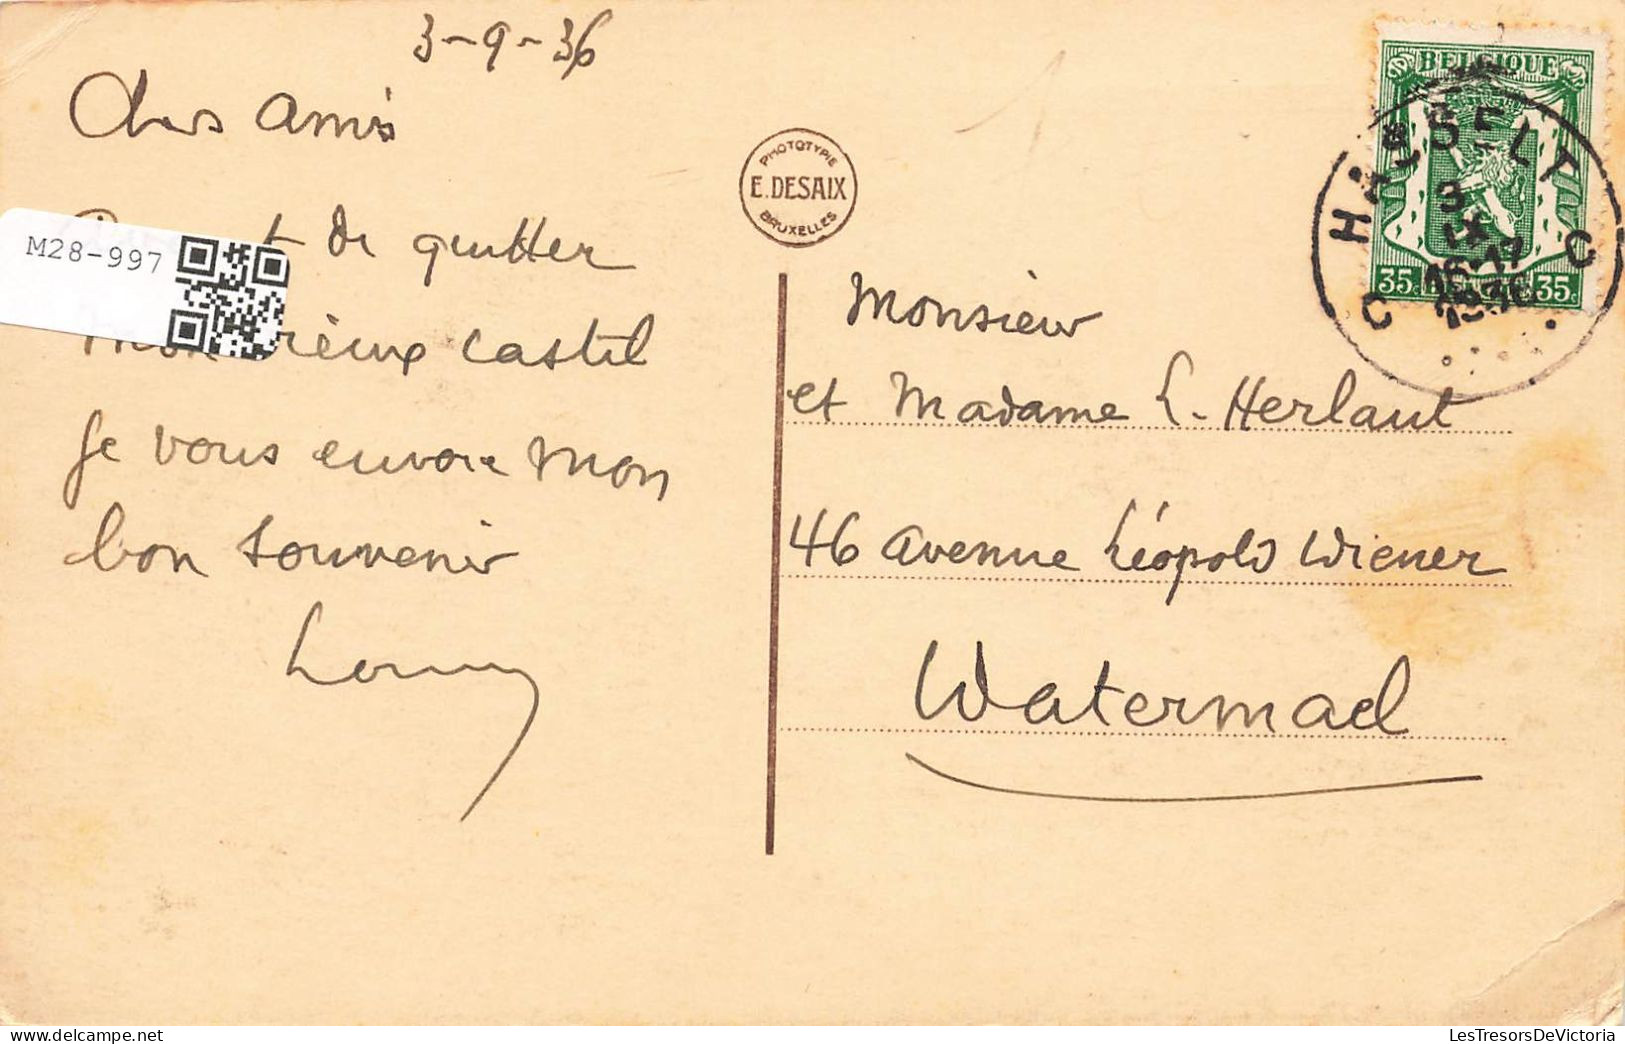 3-9-36
Chers amis
de quitter
vieux castel
je vous envoie mon
bon souvenir
M28-997
PHOTOTYPIE
E. DESAIX
BRUXELLES
BELGIQUE
35c
35c
HASSELT
C C
3
IX
16-17
1936
Monsieur
et Madame L. Herlaut
46 avenue Léopold Wiener
Watermael
LesTresorsDeVictoria.com